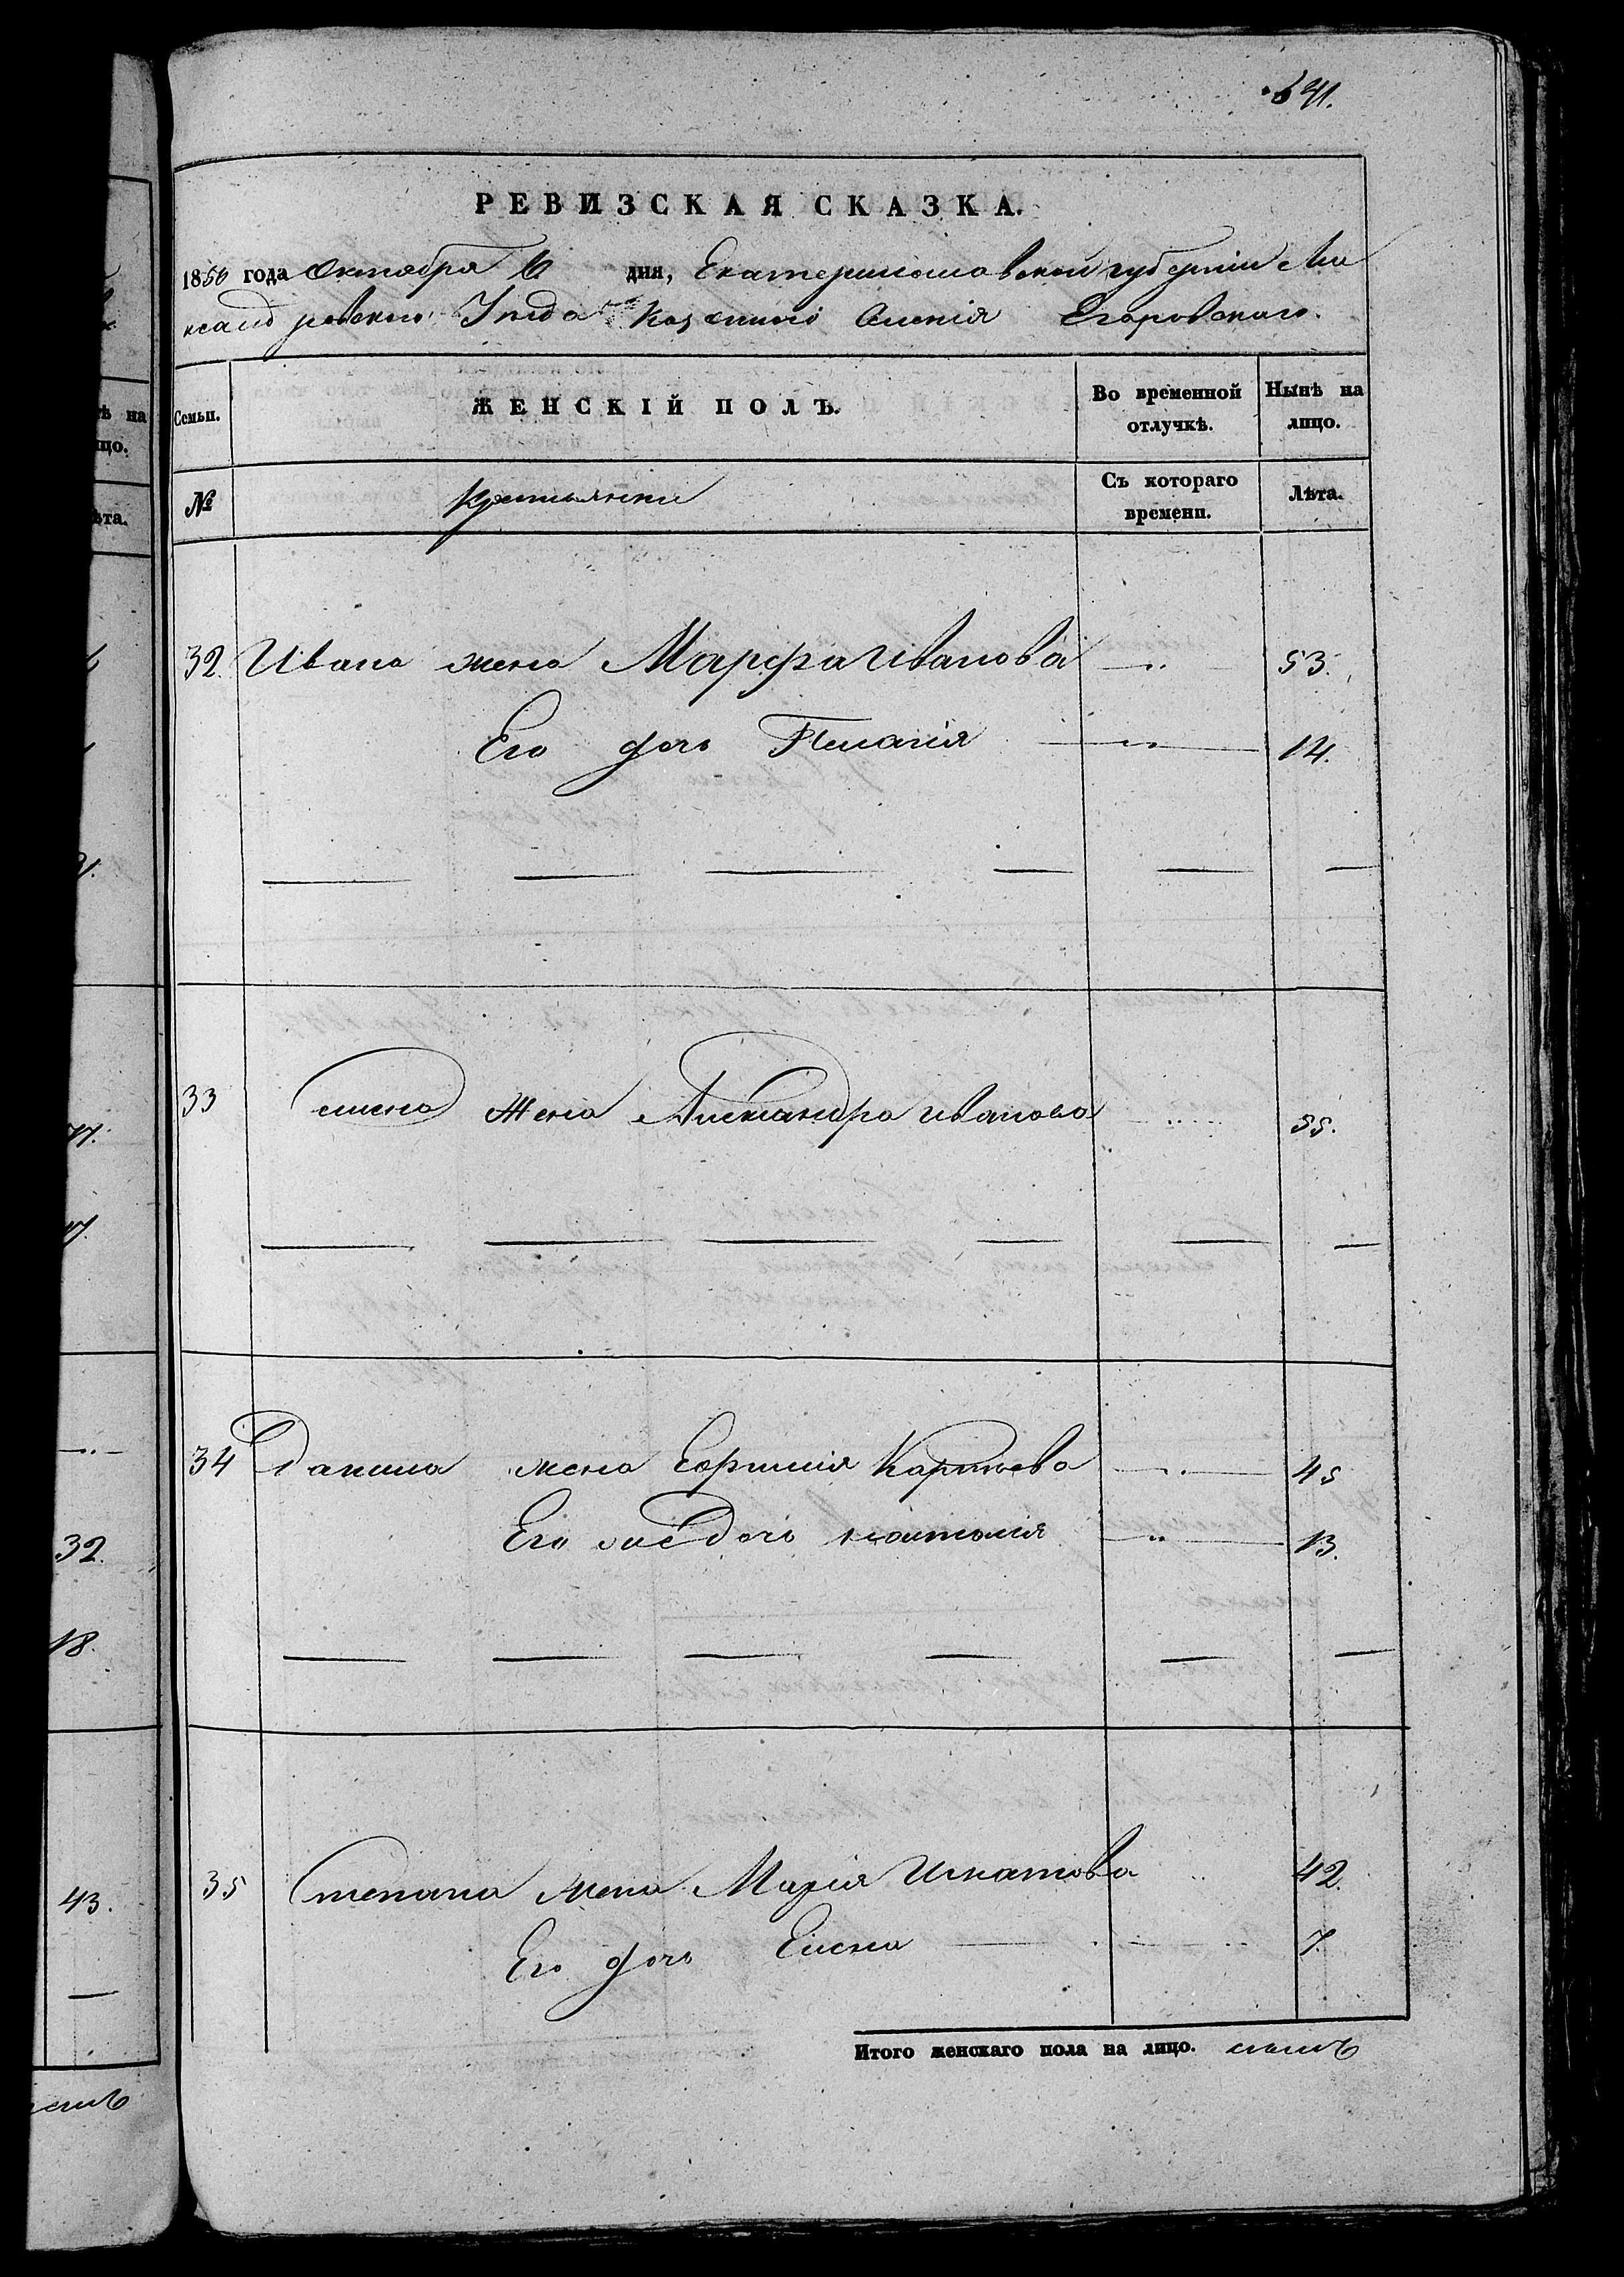 541.
РЕВИЗСКАЯ СКАЗКА.
1850 года Октября 6 дня, Екатеринославской губерніи Але
ксандровского Уезда Казенного Селенія Егоровскаго.
Семьи.
ЖЕНСКІЙ ПОЛЪ.
Во временной отлучкѣ.
Нынѣ на лицо.
№
Крестьянки
Съ котораго времени.
Лѣта.
32. Ивана жена Марфа Иванова 53.
Его дочь Пелагія 14.
33 жена Александра Иванова 55.
34 Данила жена Ефимия 45
Его дочь Наталія 13.
35 Степана жена Марія Игнатова 42.
Его дочь Елена 7.
Итого женскаго пола на лицо. семь
ѣ на
цо.
ѣта.
32.
18.
43.